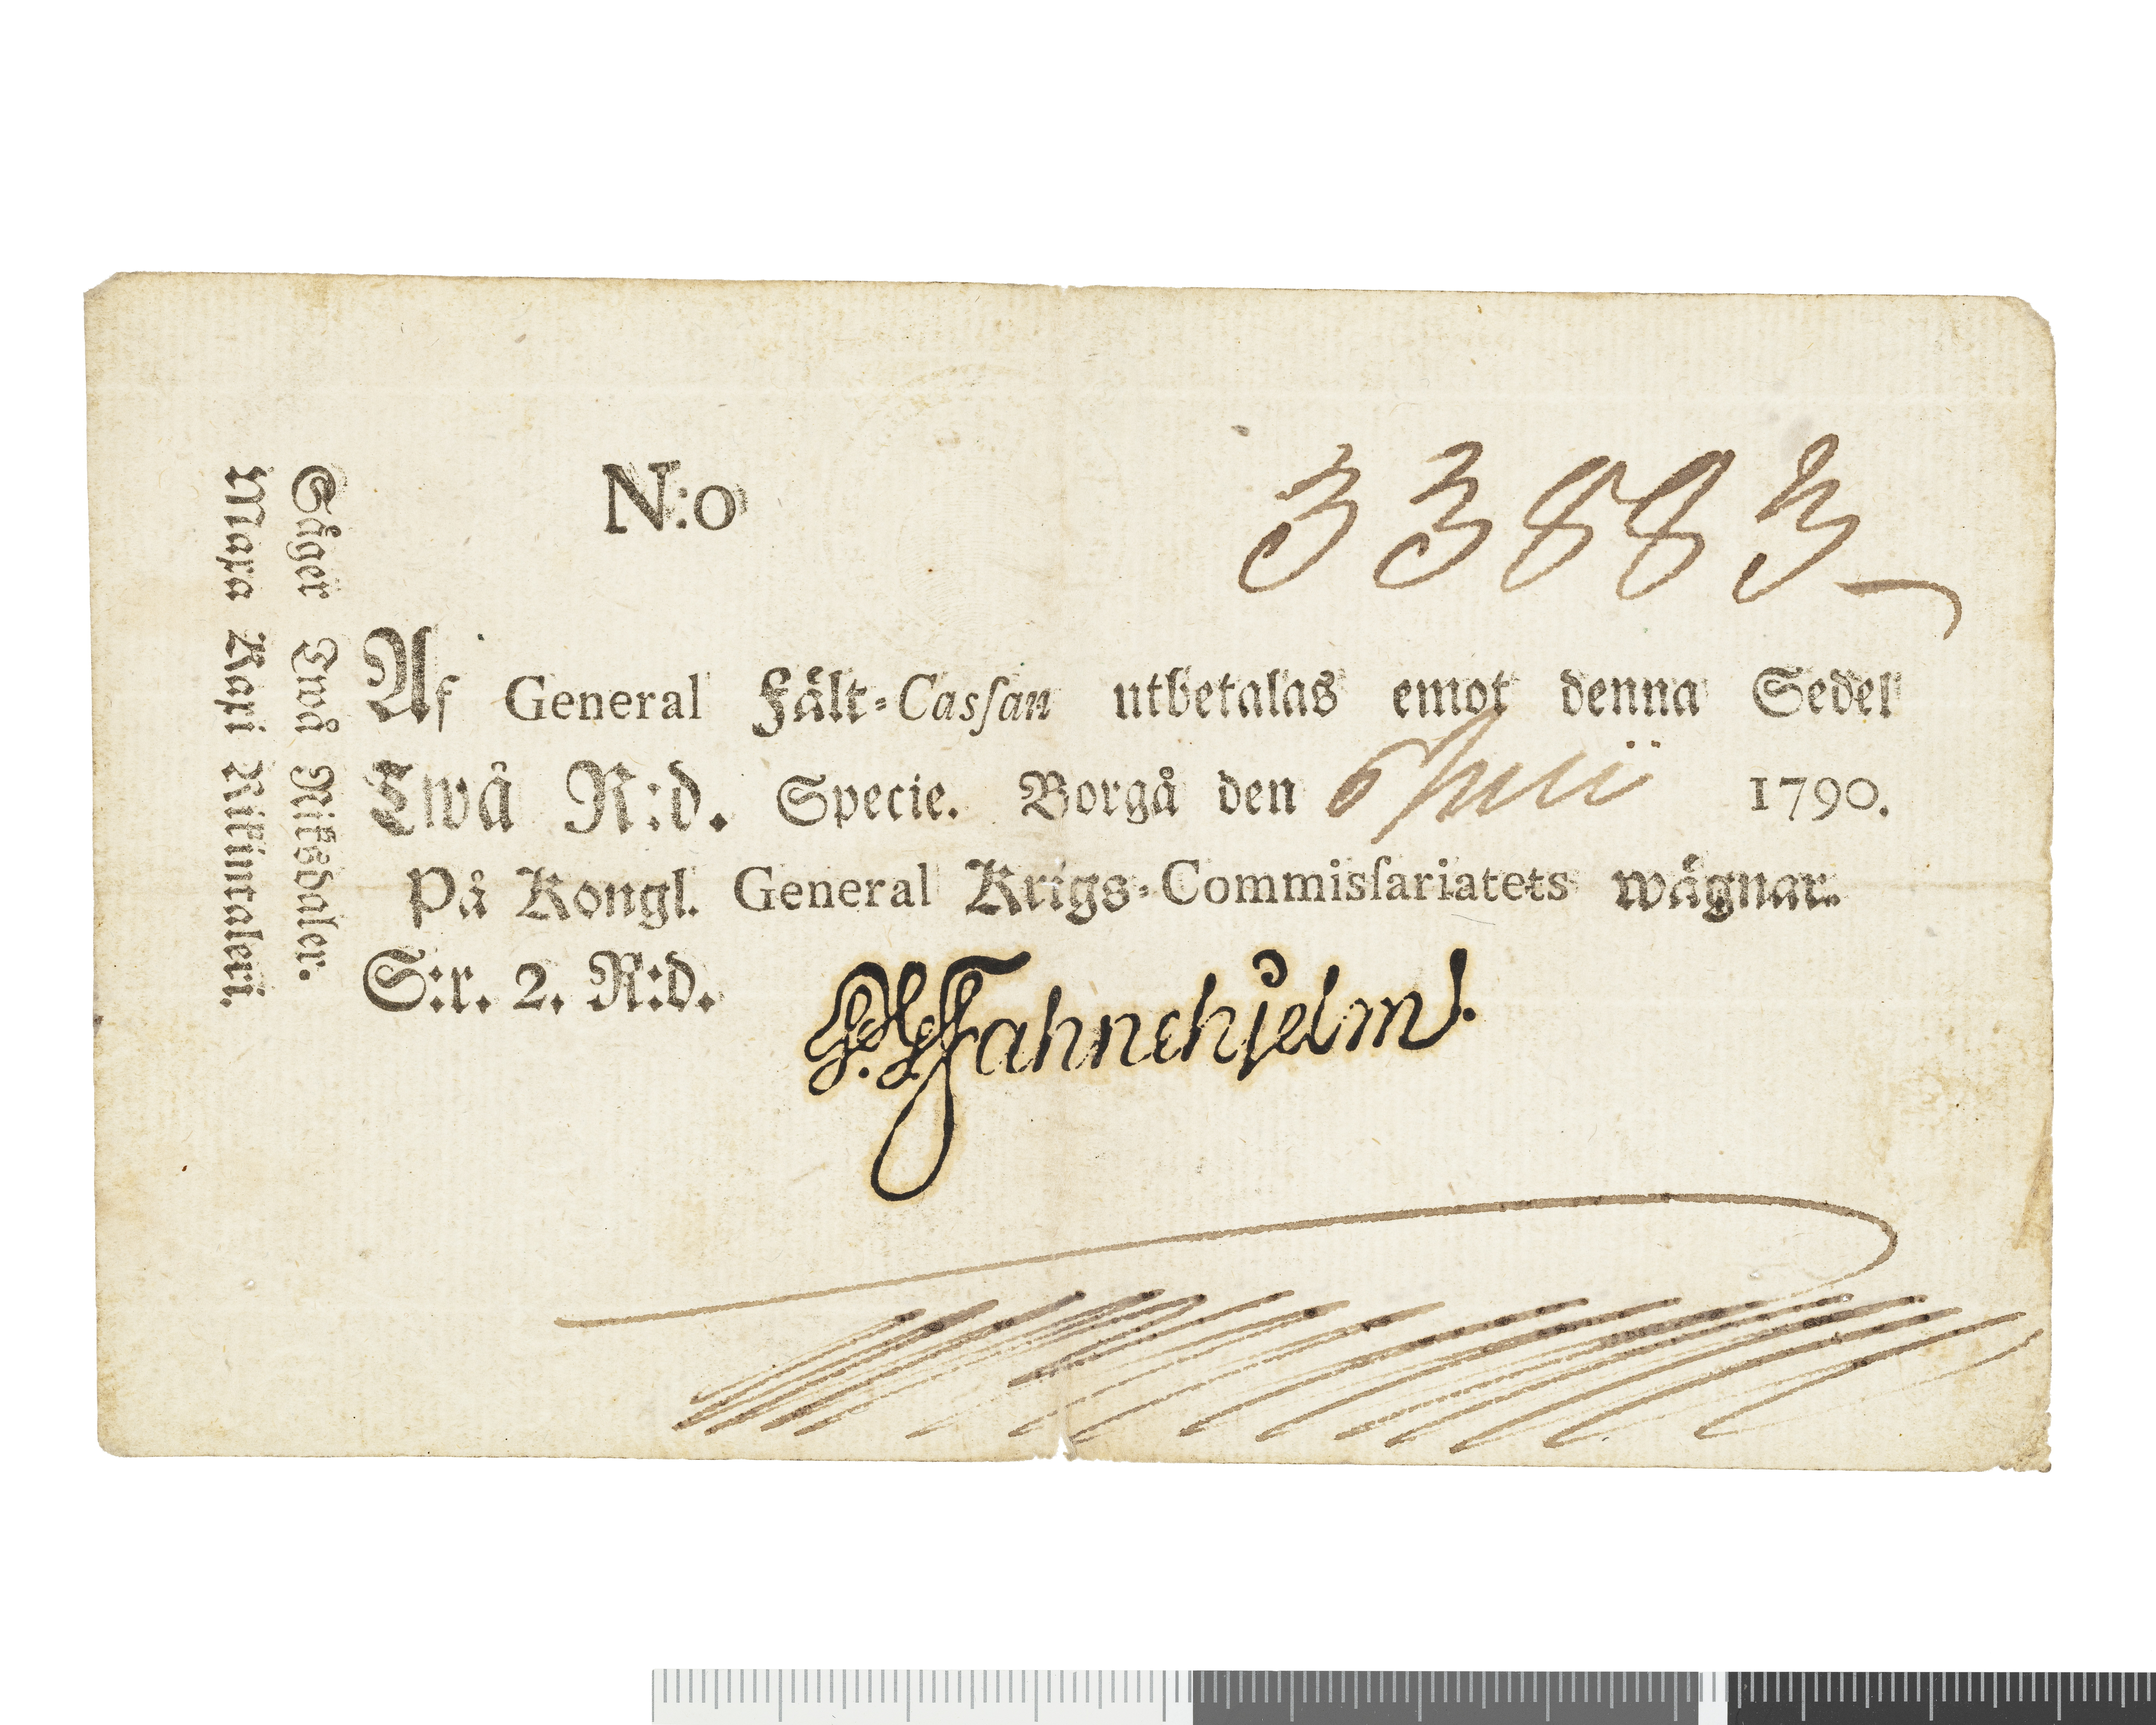 N:o 33883
Af General Fält-Casſan utbetalas emot denna Sedel
Twå R:d. Specie. Borgå den 6 Junii 1790.
På Kongl. General Krigs-Commisſariatets wägnar.
S:r. 2. R:d.
Fahnehjelm.
Säger Twå Riksdaler.
Maxa Kaxi Rikintaleri.